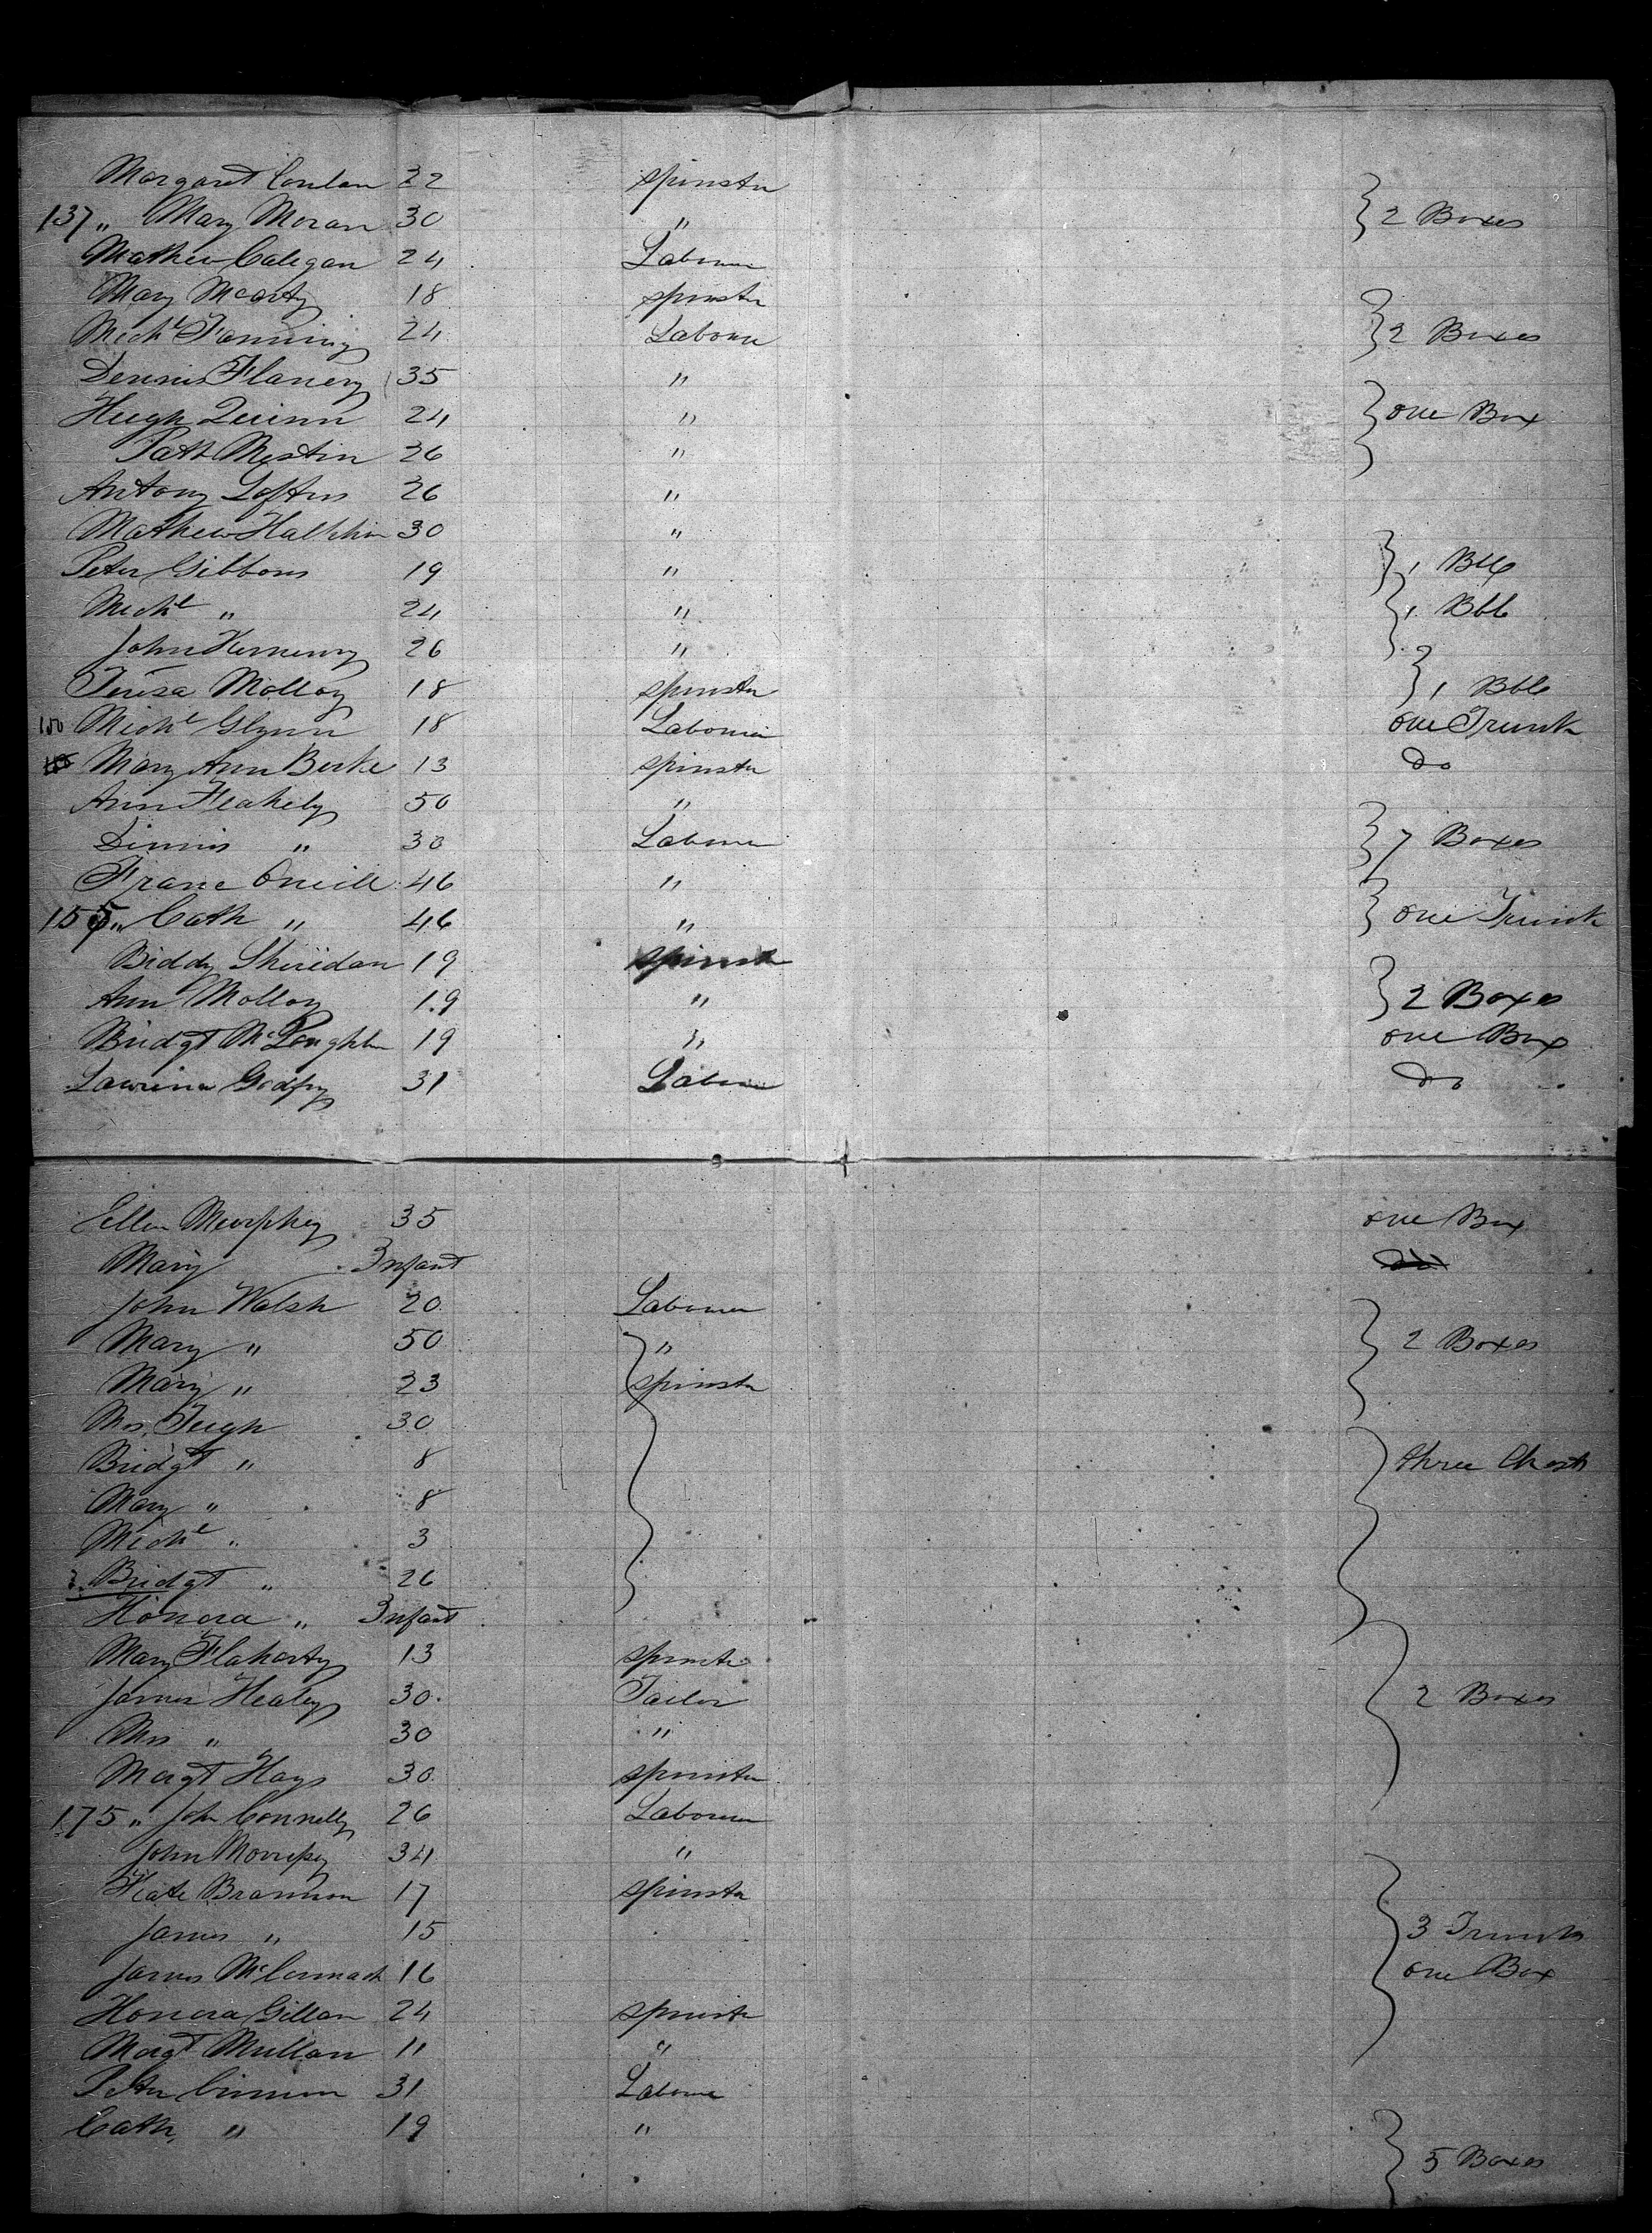 Margaret Conlan 22 spinster
137 " Mary Moran 30 " } 2 Boxes
Mathew Calegan 24 Labourer
Mary Mcarty 18 spinster
Michl Fanning 24 Labourer } 2 Boxes
Dennis Flanery 35 "
Hugh Quinn 24 " } one Box
Patt Mestin 26 "
Antony Loftus 26 "
Mathew Halphin 30 "
Peter Gibbons 19 " } 1 Bbl
Michl " 24 " } 1 Bbl
John Kernerry 26 "
Teresa Molloy 18 spinster } 1 Bbl
150 Michl Glynn 18 Labourer one Trunk
Mary Ann Burke 13 spinster do
Ann Flahely 50 "
Dinnis " 30 Labourer } 7 Boxes
Franc Oneill 46 "
155 " Cath " 46 " } one Trunk
Biddy Sheridan 19 spinster
Ann Molloy 19 " } 2 Boxes
Bridgt McLoughlin 19 " one Box
Lawrence Godfry 31 Labourer do
Ellen Murphey 35 one Box
Mary Infant do
John Walsh 20 Labourer
Mary " 50 " } 2 Boxes
Mary " 23 spinster
Mrs Feigh 30
Bridgt " 8 } three Chests
Mary " 8
Michl " 3
Bridgt " 26
Honora " Infant
Mary Flaharty 13 spinster
James Healey 30 Tailor } 2 Boxes
Mrs " 30 "
Margt Hays 30 spinster
175 " John Connelly 26 Labourer
John 34 "
Kate Brannon 17 spinster
James " 15 } 3 Trunks
James McCormack 16 one Box
Honora Gillan 24 spinster
Margt Mullan 11 "
Peter 31 Labourer
Cath " 19 "
} 5 Boxes